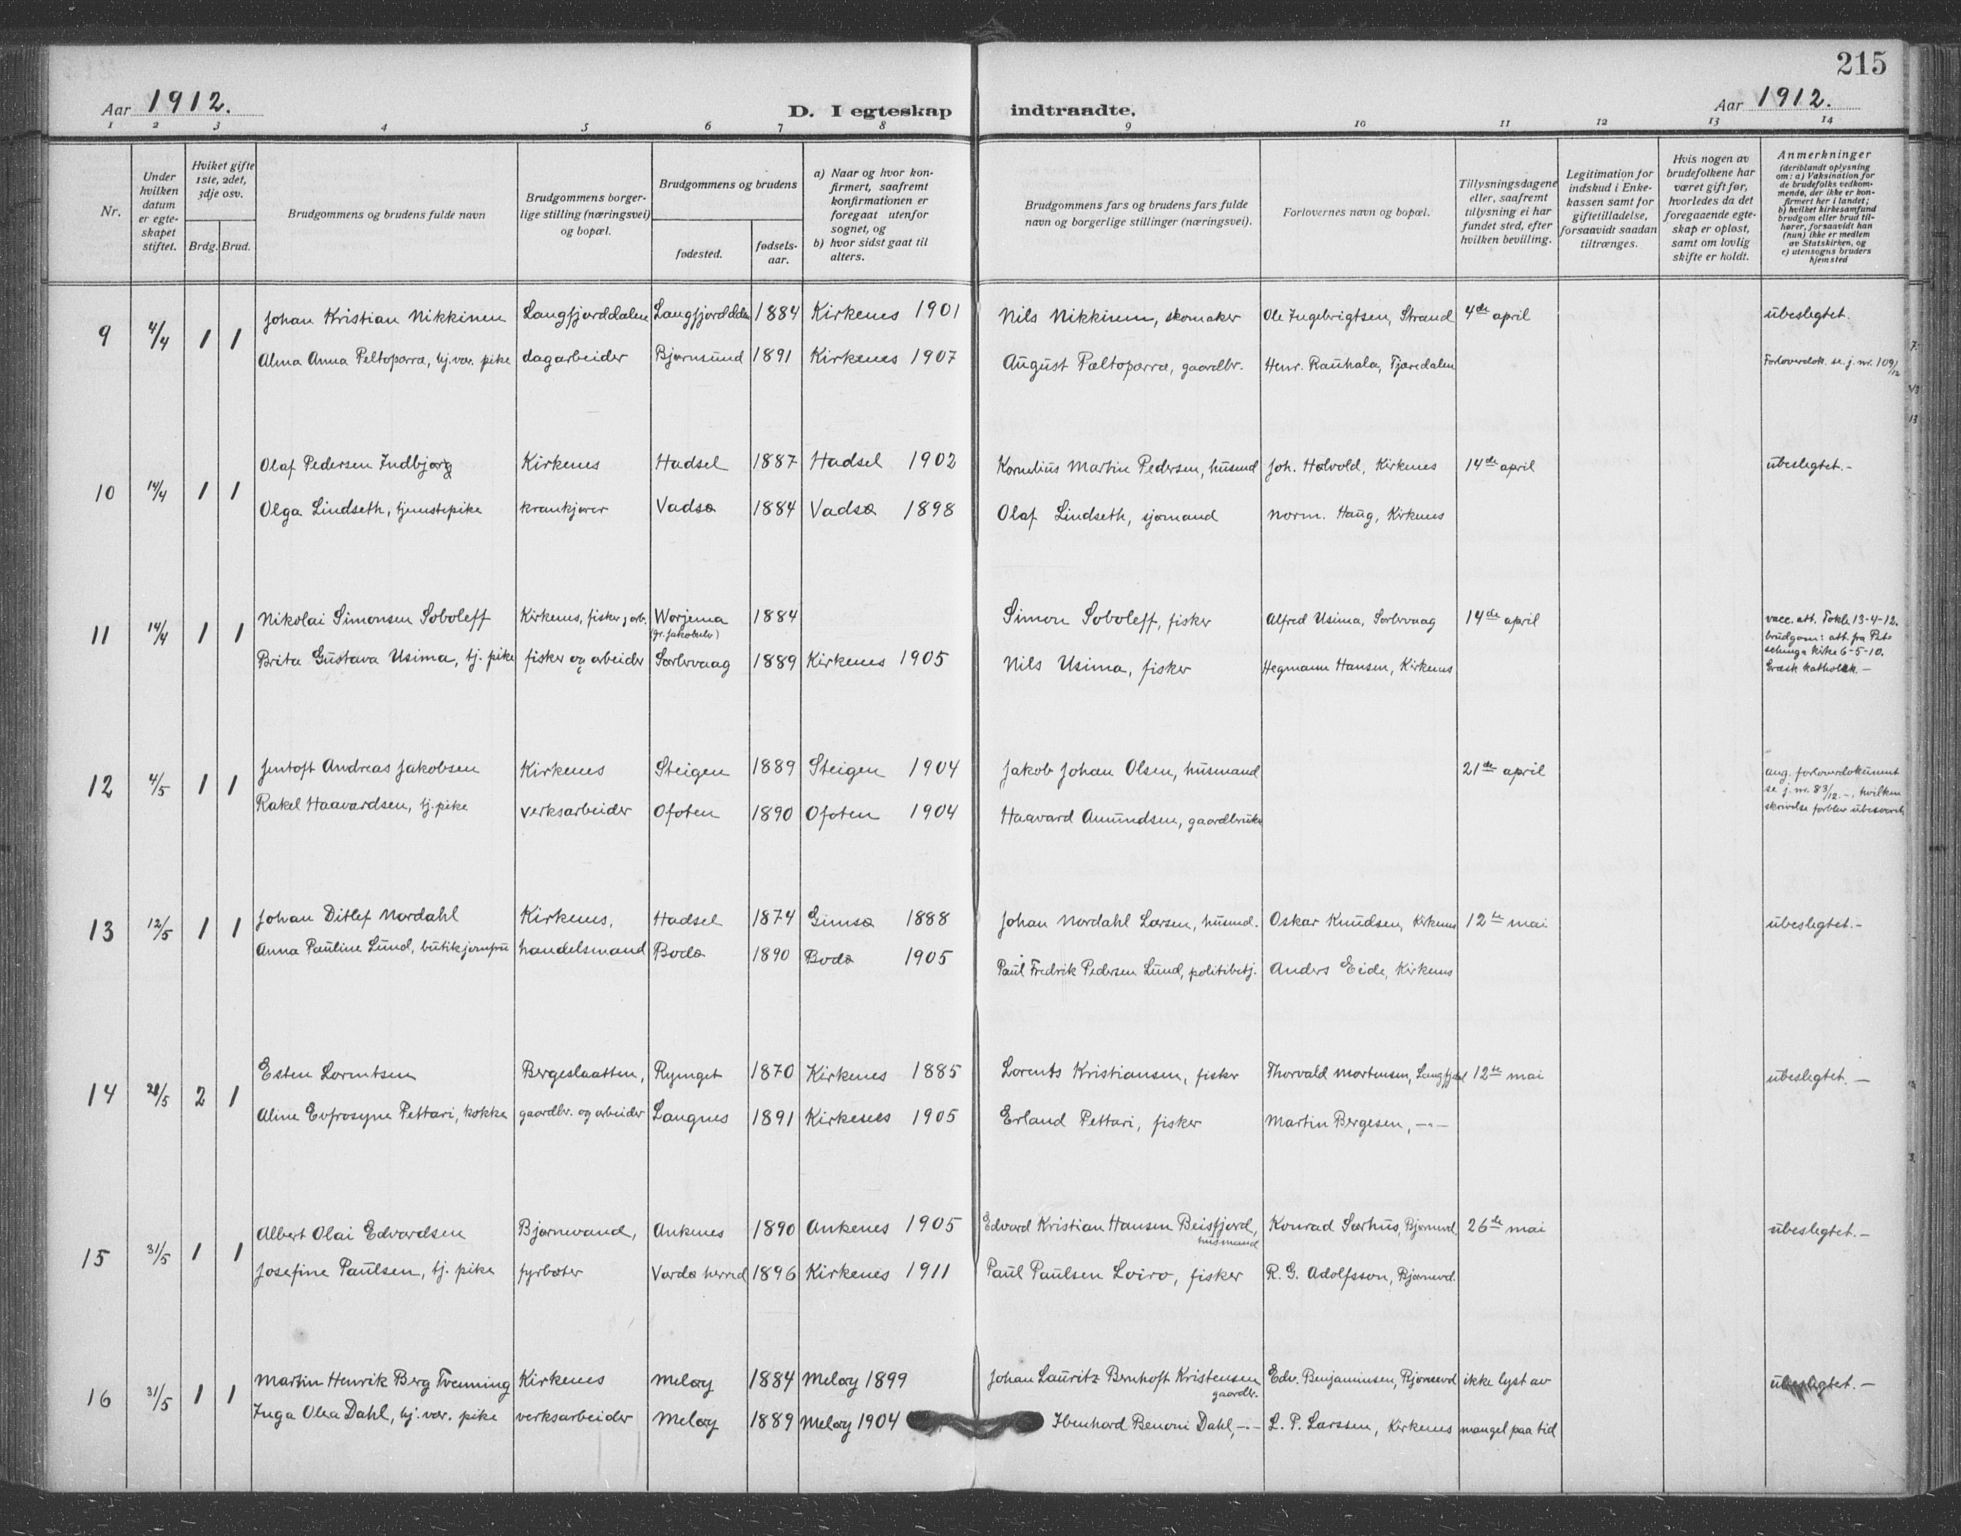 215
Aar 1912.
D. I egteskap indtraadte.
Aar 1912.
1 2 3 4 5 6 7 8 9 10 11 12 13 14
Nr.
Under hvilken datum er egteskapet stiftet.
Hviket gifte 1ste, 2det, 3dje osv.
Brdg. Brud.
Brudgommens og brudens fulde navn
Brudgommens borgerlige stilling (næringsvei) og bopæl.
Brudgommens og brudens
fødested.
fødselsaar.
a) Naar og hvor konfirmert, saafremt konfirmationen er foregaat utenfor sognet, og
b) hvor sidst gaat til alters.
Brudgommens fars og brudens fars fulde navn og borgerlige stillinger (næringsvei).
Forlovernes navn og bopæl.
Tillysningsdagene eller, saafremt tillysning ei har fundet sted, efter hvilken bevilling.
Legitimation for indskud i Enkekassen samt for giftetilladelse, forsaavidt saadan tiltrænges.
Hvis nogen av brudefolkene har været gift før, hvorledes da det foregaaende egteskap er opløst, samt om lovlig skifte er holdt.
Anmerkninger
(deriblandt oplysning om: a) Vaksination for de brudefolks vedkommende, der ikke er konfirmert her i landet; b) hvilket kirkesamfund brudgom eller brud tilhører, forsaavidt han (hun) ikke er medlem av Statskirken, og c) utensogns bruders hjemsted
9 4/4 1 1
Johan Kristian Nikkinen Langfjorddalen Langfjorddalen 1884 Kirkenes 1901 Nils Nikkinen, skomaker Ole Ingebrigtsen, Strand 4de april ubeslegtet.
Alma Anna Peltoperra, hj.vær. pike dagarbeider Bjørnsund 1891 Kirkenes 1907 August Pæltoperra, gaardbr. Henr. Rauhala, Fjæredalen Forloverdok. se j. nr. 109/12
10 14/4 1 1
Olaf Pedersen Indbjørg Kirkenes Hadsel 1887 Hadsel 1902 Kornelius Martin Pedersen, husmd Joh. Halvold, Kirkenes 14de april ubeslegtet.-
Olga Lindseth, tjenstepike krankjører Vadsø 1884 Vadsø 1898 Olaf Lindseth, sjømand Norm. Haug, Kirkenes
11 14/4 1 1
Nikolai Simonsen Soboleff Kirkenes, fisker, arb. Worjema (Gr. Jakobselv) 1884 Simon Soboleff, fisker Alfred Usima, Sørleirvaag 14de april vacc. att. Fokle 13-4-12. brudgom: att. fra Petschenga kirke 6-5-10. Græsk katholsk.-
Brita Gustava Usima, tj. pike fisker og arbeider 1889 Kirkenes 1905 Nils Usima, fisker Hegmann Hansen, Kirkenes
12 4/5 1 1
Jentoft Andreas Jakobsen Kirkenes Steigen 1889 Steigen 1904 Jakob Johan Olsen, husmand 21de april ang. forloverdokument se j. nr. 83/12.-, hvilken skrivelse forblev ubesvaret
Rakel Haavardsen, tj. pike verksarbeider Ofoten 1890 Ofoten 1904 Haavard Amundsen, gaardbruker
13 12/5 1 1
Johan Ditlef Nordahl Kirkenes, Hadsel 1874 Gimsø 1888 Johan Nordahl Larsen, husmd. Oskar Knudsen, Kirkenes 12te mai ubeslegtet.-
Anna Pauline Lund, butikjomfru handelsmand Bodø 1890 Bodø 1905 Paul Fredrik Pedersen Lund, politibetj. Anders Eide, Kirkenes
14 28/5 2 1
Esten Lorentsen Bergeslaatten, Rymget 1870 Kirkenes 1885 Lorents Kristiansen, fisker Thorvald Mortensen, Langfjord 12te mai ubeslegtet.-
Aline Evfrosyne Pettari, kokke gaardbr. og arbeider Langnes 1891 Kirkenes 1905 Erland Pettari, fisker Martin Bergesen, -·-
15 31/5 1 1
Albert Olai Edvardsen Bjørnevand, Ankenes 1890 Ankenes 1905 Edvard Kristian Hansen Beisfjord, husmand Konrad Sørhus, Bjørnevd 26de mai ubeslegtet.-
Josefine Paulsen, tj. pike fyrbøter Vardø herred 1896 Kirkenes 1911 Paul Paulsen Loiro, fisker R. G. Adolfsson, Bjørnevd.
16 31/5 1 1
Martin Henrik Berg Tvenning Kirkenes Meløy 1884 Meløy 1899 Johan Lauritz Bernhoft Kristensen gaardbr. Edv. Benjaminsen, Bjørnevd ikke lyst av ubeslegtet.-
Inga Olea Dahl, hj. vær. pike verksarbeider Meløy 1889 Meløy 1904 Ibenhard Benoni Dahl, -·- L. P. Larssen, Kirkenes mangel paa tid